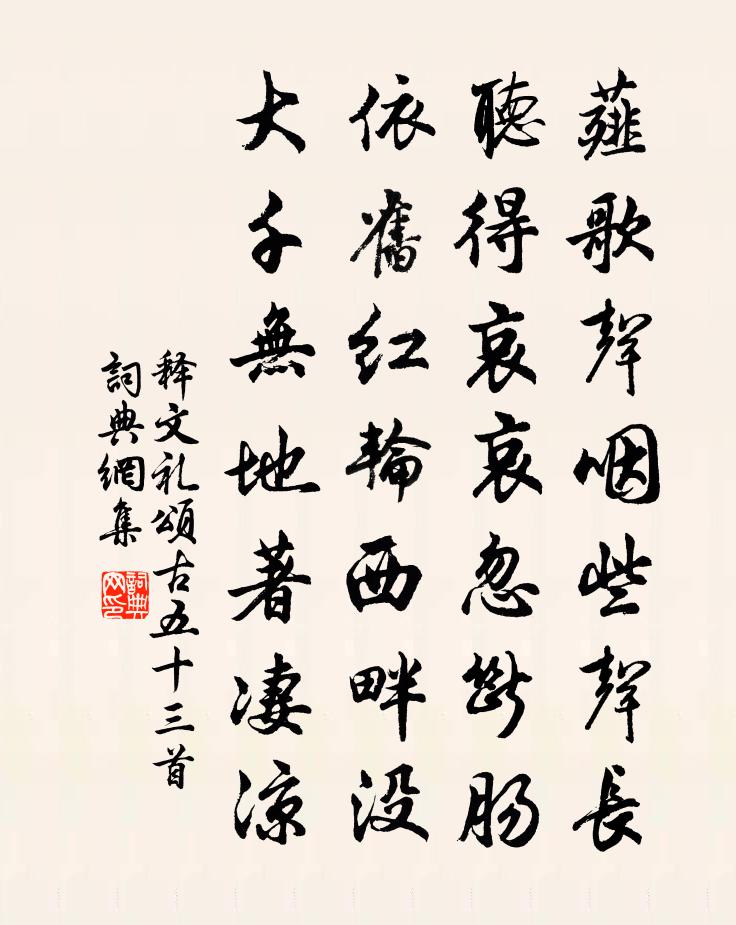 薤歌聲咽些聲長
聽得哀哀忽斷腸
依舊紅輪西畔没
大千無地著凄涼
释文礼頌古五十三首
詞典網集
詞典網印